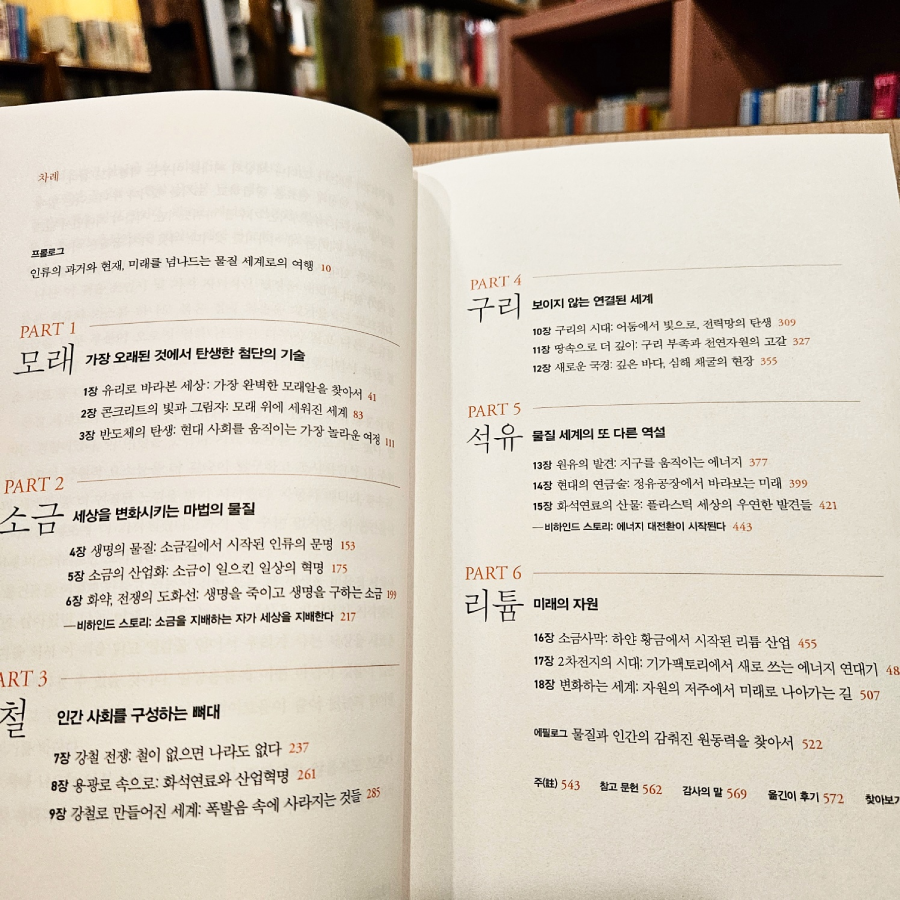 차례
프롤로그
인류의 과거와 현재, 미래를 넘나드는 물질 세계로의 여행 10
PART 1
모래 가장 오래된 것에서 탄생한 첨단의 기술
1장 유리로 바라본 세상: 가장 완벽한 모래알을 찾아서 41
2장 콘크리트의 빛과 그림자: 모래 위에 세워진 세계 83
3장 반도체의 탄생: 현대 사회를 움직이는 가장 놀라운 여정 111
PART 2
소금 세상을 변화시키는 마법의 물질
4장 생명의 물질: 소금길에서 시작된 인류의 문명 153
5장 소금의 산업화: 소금이 일으킨 일상의 혁명 175
6장 화약, 전쟁의 도화선: 생명을 죽이고 생명을 구하는 소금 199
—비하인드 스토리: 소금을 지배하는 자가 세상을 지배한다 217
ART 3
철 인간 사회를 구성하는 뼈대
7장 강철 전쟁: 철이 없으면 나라도 없다 237
8장 용광로 속으로: 화석연료와 산업혁명 261
9장 강철로 만들어진 세계: 폭발음 속에 사라지는 것들 285
PART 4
구리 보이지 않는 연결된 세계
10장 구리의 시대: 어둠에서 빛으로, 전력망의 탄생 309
11장 땅속으로 더 깊이: 구리 부족과 천연자원의 고갈 327
12장 새로운 국경: 깊은 바다, 심해 채굴의 현장 355
PART 5
석유 물질 세계의 또 다른 역설
13장 원유의 발견: 지구를 움직이는 에너지 377
14장 현대의 연금술: 정유공장에서 바라보는 미래 399
15장 화석연료의 산물: 플라스틱 세상의 우연한 발견들 421
—비하인드 스토리: 에너지 대전환이 시작된다 443
PART 6
리튬 미래의 자원
16장 소금사막: 하얀 황금에서 시작된 리튬 산업 455
17장 2차전지의 시대: 기가팩토리에서 새로 쓰는 에너지 연대기 48
18장 변화하는 세계: 자원의 저주에서 미래로 나아가는 길 507
에필로그 물질과 인간의 감춰진 원동력을 찾아서 522
주(註) 543 참고 문헌 562 감사의 말 569 옮긴이 후기 572 찾아보기